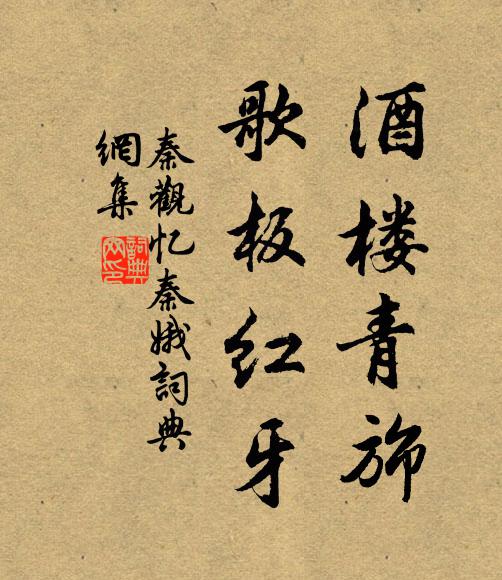 酒楼青旆
歌板红牙
秦觀忆秦娥詞典
網集
詞典
网印